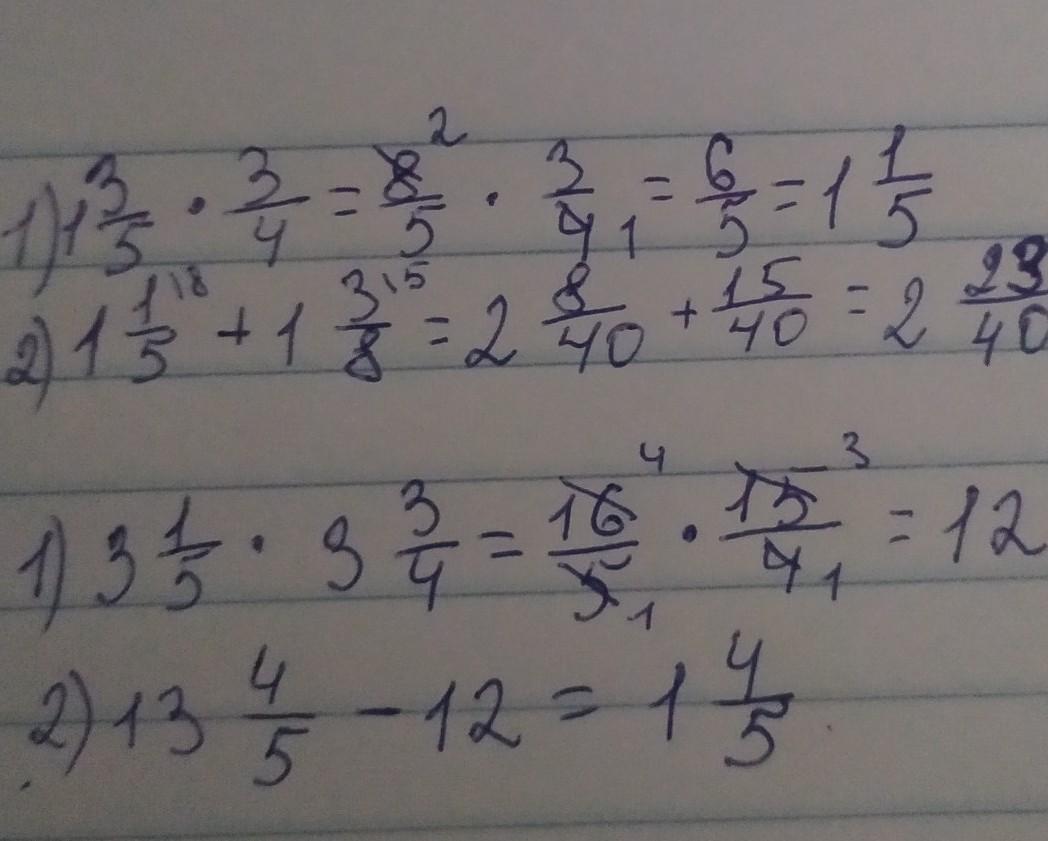 1) 1 3/5 · 3/4 = 8/5 2 · 3/4 1 = 6/5 = 1 1/5
2) 1 1/5 \8 + 1 3/8 \5 = 2 8/40 + 15/40 = 2 23/40
1) 3 1/5 · 3 3/4 = 16/5 4 1 · 15/4 3 1 = 12
2) 13 4/5 - 12 = 1 4/5